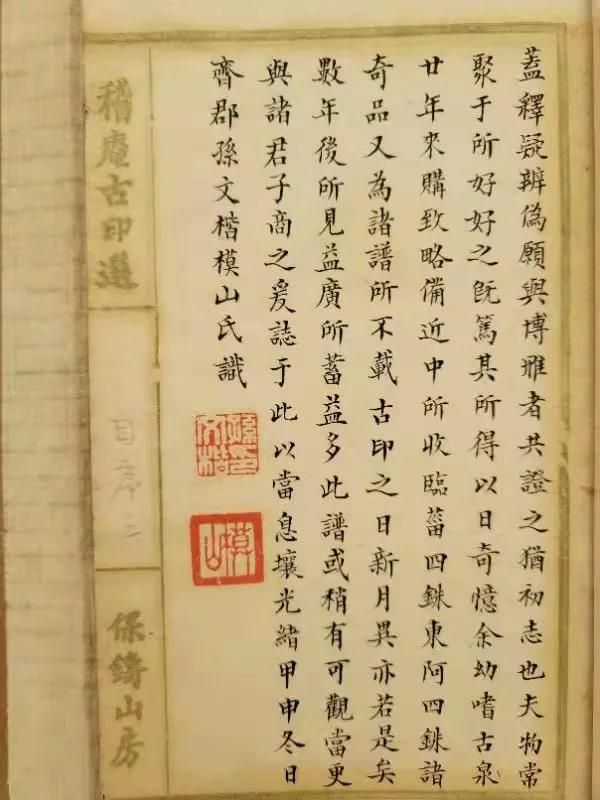 蓋釋疑辨偽願與博雅者共證之猶初志也夫物常
聚于所好好之既篤其所得以日奇憶余幼嗜古泉
廿年來購致略備近中所收臨菑四銖東阿四銖諸
奇品又為諸譜所不載古印之日新月異亦若是矣
數年後所見益廣所蓄益多此譜或稍有可觀當更
與諸君子商之爰誌于此以當息壤光緒甲申冬日
齊郡孫文楷模山氏識
孫文楷印
模山
稽庵古印選
自序二
保鑄山房